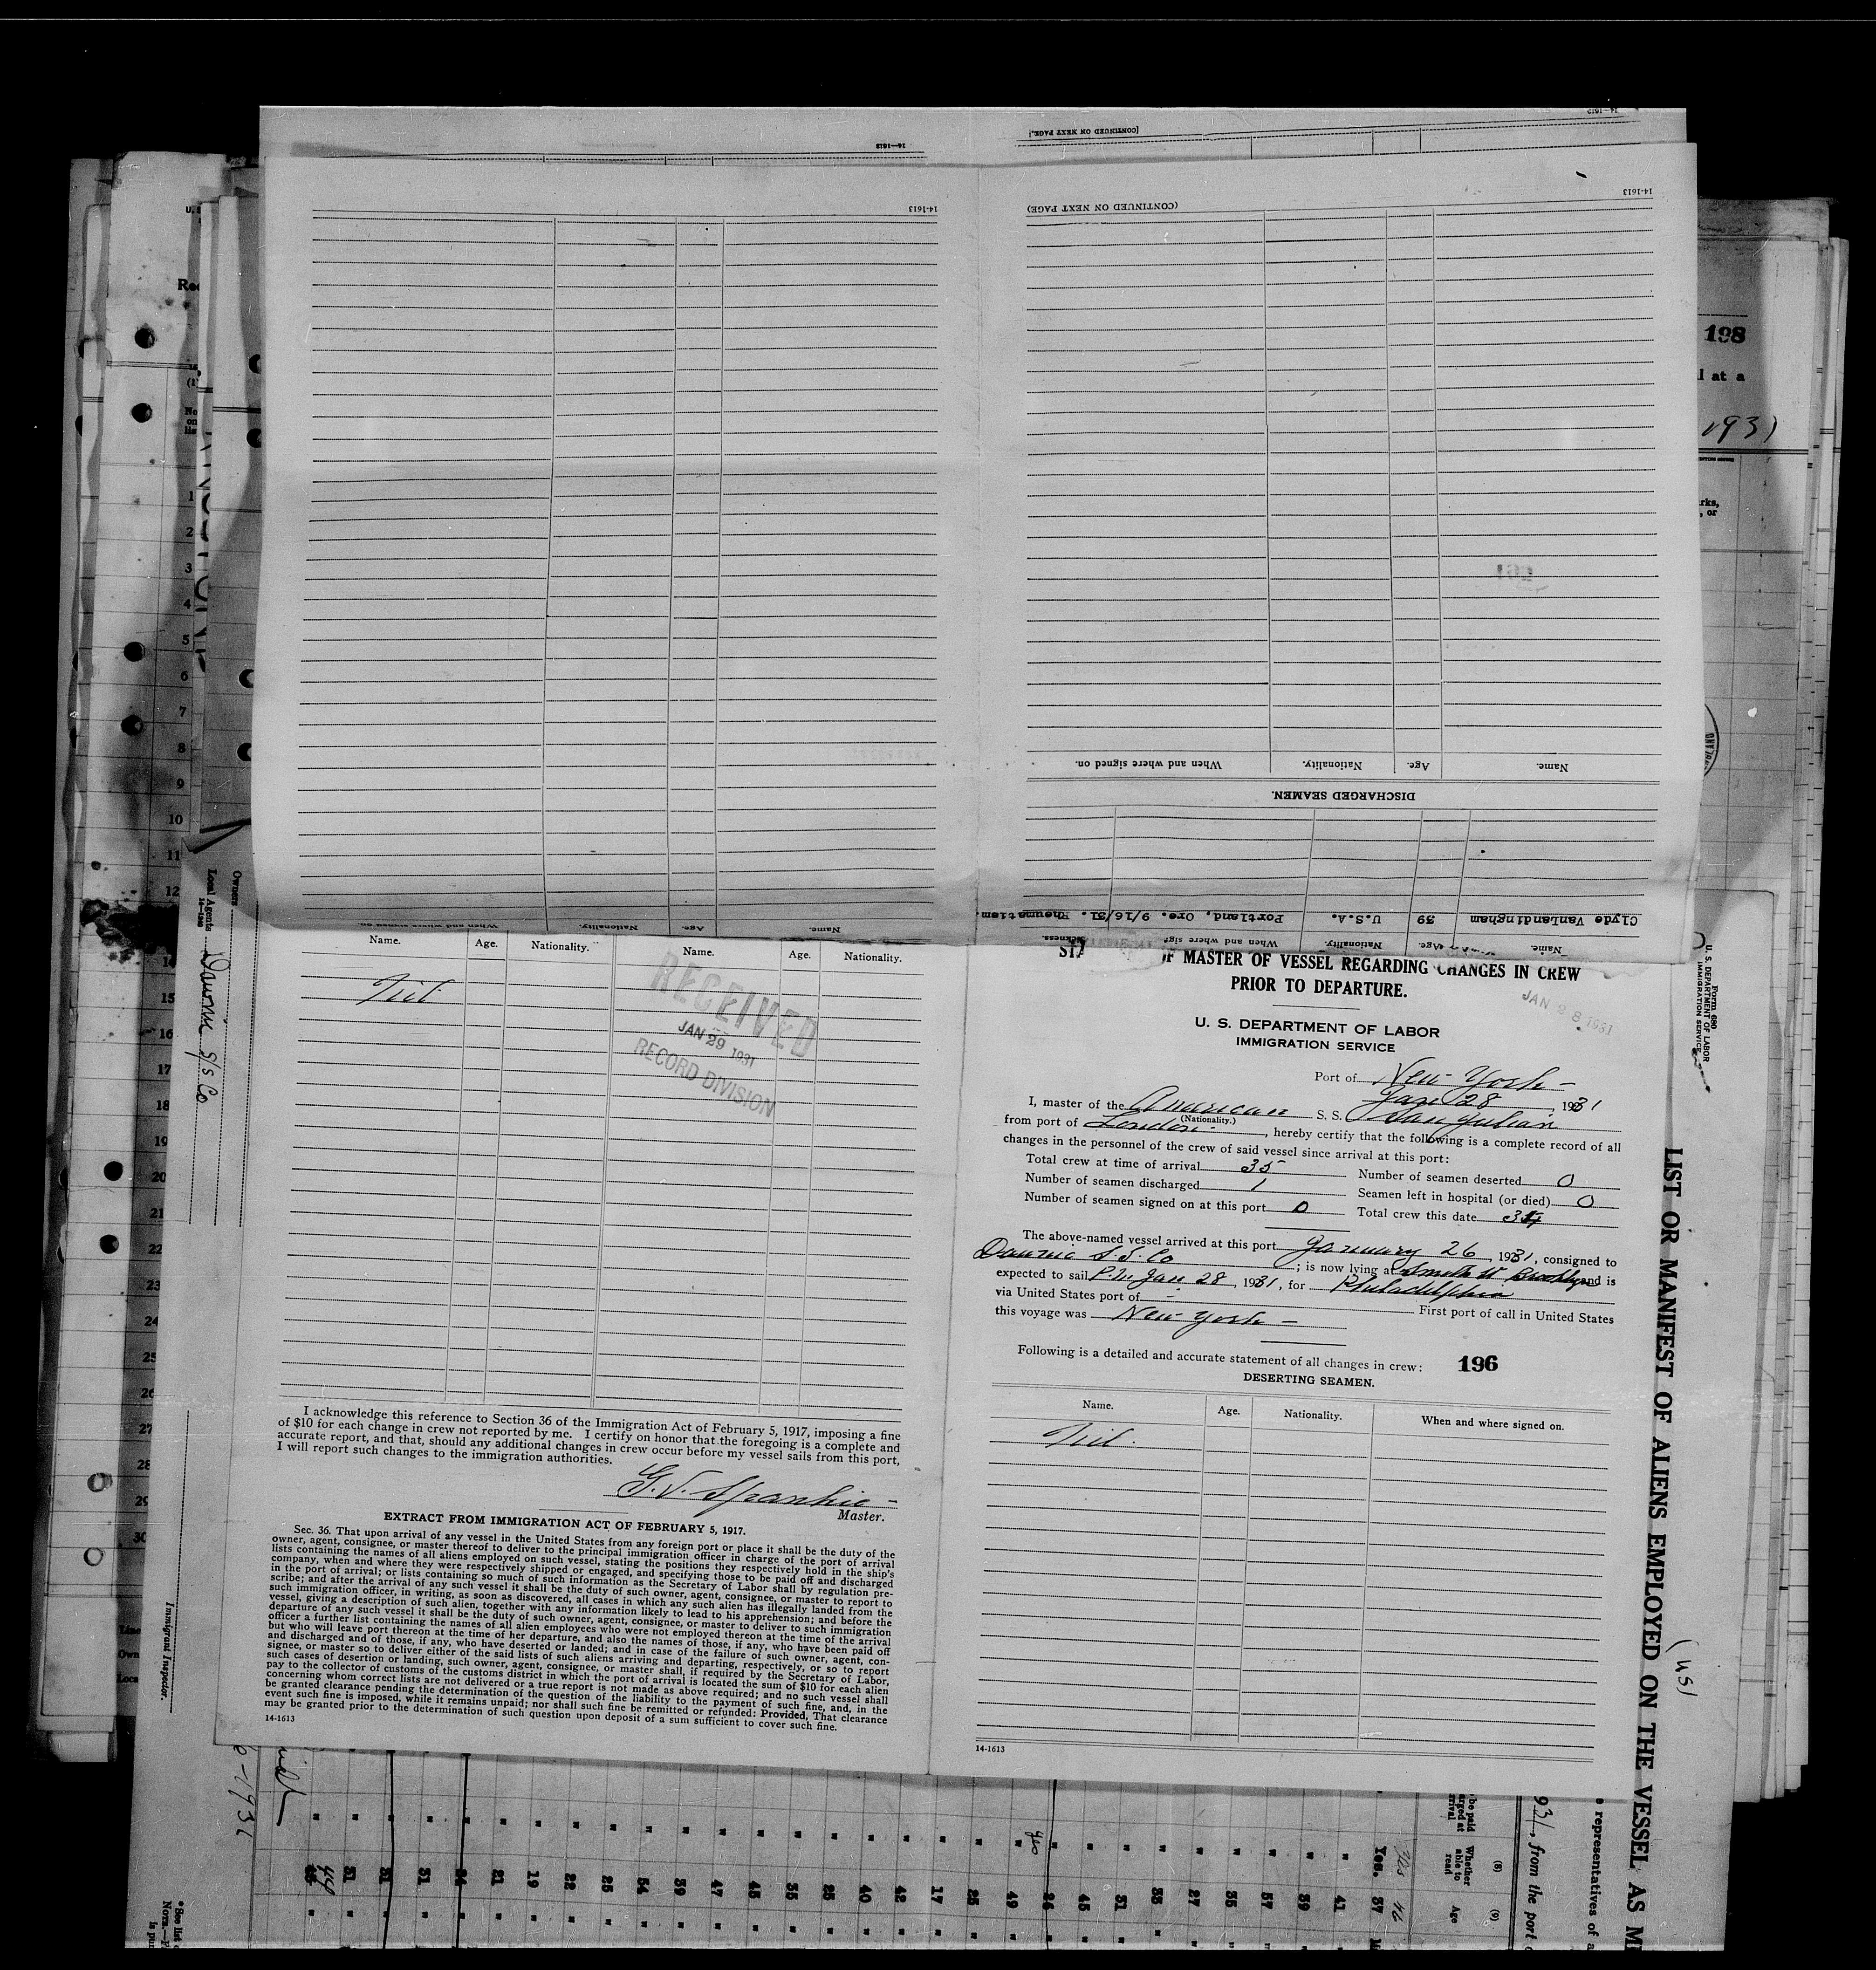 14—1613
[CONTINUED ON NEXT PAGE.]
14—1613
14-1613
(CONTINUED ON NEXT PAGE)
14-1613
Name. Age. Nationality. When and where signed on.
DISCHARGED SEAMEN.
Clyde VanLandingham 39 U.S.A. Portland, Ore. 9/16/31. Rheumatism.
Name. Age. Nationality. When and where sig sickness.
Name. Age. Nationality. When and where signed on.
Name. Age. Nationality. Name. Age. Nationality.
Nil
RECEIVED
JAN 29 1931
RECORD DIVISION
I acknowledge this reference to Section 36 of the Immigration Act of February 5, 1917, imposing a fine
of $10 for each change in crew not reported by me. I certify on honor that the foregoing is a complete and
accurate report, and that, should any additional changes in crew occur before my vessel sails from this port,
I will report such changes to the immigration authorities.
Master.
EXTRACT FROM IMMIGRATION ACT OF FEBRUARY 5, 1917.
Sec. 36. That upon arrival of any vessel in the United States from any foreign port or place it shall be the duty of the
owner, agent, consignee, or master thereof to deliver to the principal immigration officer in charge of the port of arrival
lists containing the names of all aliens employed on such vessel, stating the positions they respectively hold in the ship's
company, when and where they were respectively shipped or engaged, and specifying those to be paid off and discharged
in the port of arrival; or lists containing so much of such information as the Secretary of Labor shall by regulation pre-
scribe; and after the arrival of any such vessel it shall be the duty of such owner, agent, consignee, or master to report to
such immigration officer, in writing, as soon as discovered, all cases in which any such alien has illegally landed from the
vessel, giving a description of such alien, together with any information likely to lead to his apprehension; and before the
departure of any such vessel it shall be the duty of such owner, agent, consignee, or master to deliver to such immigration
officer a further list containing the names of all alien employees who were not employed thereon at the time of the arrival
but who will leave port thereon at the time of her departure, and also the names of those, if any, who have been paid off
and discharged and of those, if any, who have deserted or landed; and in case of the failure of such owner, agent, con-
signee, or master so to deliver either of the said lists of such aliens arriving and departing, respectively, or so to report
such cases of desertion or landing, such owner, agent, consignee, or master shall, if required by the Secretary of Labor,
pay to the collector of customs of the customs district in which the port of arrival is located the sum of $10 for each alien
concerning whom correct lists are not delivered or a true report is not made as above required; and no such vessel shall
be granted clearance pending the determination of the question of the liability to the payment of such fine, and, in the
event such fine is imposed, while it remains unpaid; nor shall such fine be remitted or refunded: Provided, That clearance
may be granted prior to the determination of such question upon deposit of a sum sufficient to cover such fine.
14-1613
OF MASTER OF VESSEL REGARDING CHANGES IN CREW
PRIOR TO DEPARTURE.
JAN 28 1931
U. S. DEPARTMENT OF LABOR
IMMIGRATION SERVICE
Port of New York
Jan 28, 1931
I, master of the American S. S. San Julian
(Nationality.)
from port of London, hereby certify that the following is a complete record of all
changes in the personnel of the crew of said vessel since arrival at this port:
Total crew at time of arrival 35 Number of seamen deserted 0
Number of seamen discharged 1 Seamen left in hospital (or died) 0
Number of seamen signed on at this port 0 Total crew this date 34
The above-named vessel arrived at this port January 26, 1931, consigned to
Daunic S.S. Co; is now lying at Smith St Brooklyn and is
expected to sail P.M. Jan 28, 1931, for Philadelphia
via United States port of - First port of call in United States
this voyage was New York -
Following is a detailed and accurate statement of all changes in crew: 196
DESERTING SEAMEN.
Name. Age. Nationality. When and where signed on.
Nil.
14-1613
LIST OR MANIFEST OF ALIENS EMPLOYED ON THE VESSEL AS ME
Form 680
U. S. DEPARTMENT OF LABOR
IMMIGRATION SERVICE
198
l at a
1931
Owners
Local Agents
S/S Co.
Immigrant Inspector.
1
2
3
4
5
6
7
8
9
10
11
12
14
15
16
17
18
19
20
21
22
23
24
25
26
27
28
29
30
931, from the port o
e representatives of a
Whether able to read
(8)
Age
(9)
Yes. 37